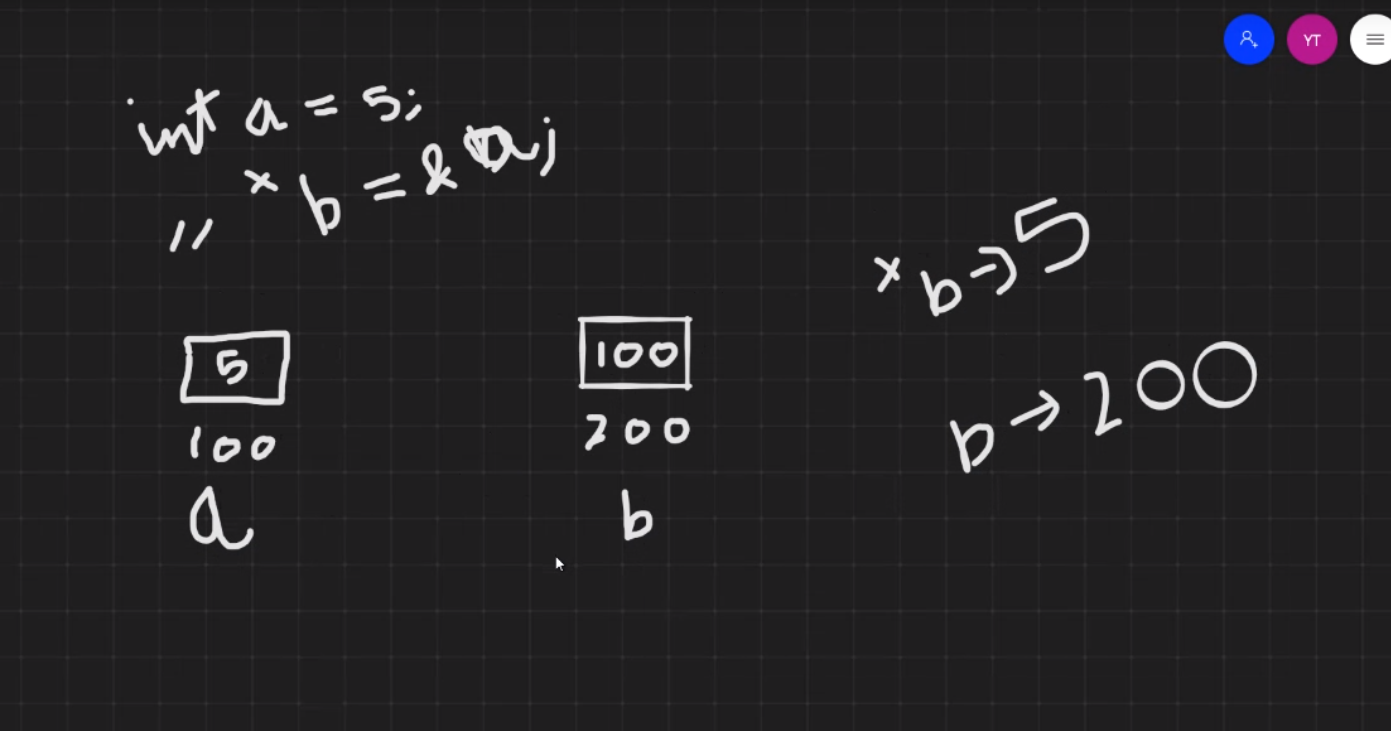 YT
int a = 5;
" * b = & a;
* b → 5
5
100
100
200
b → 200
a
b